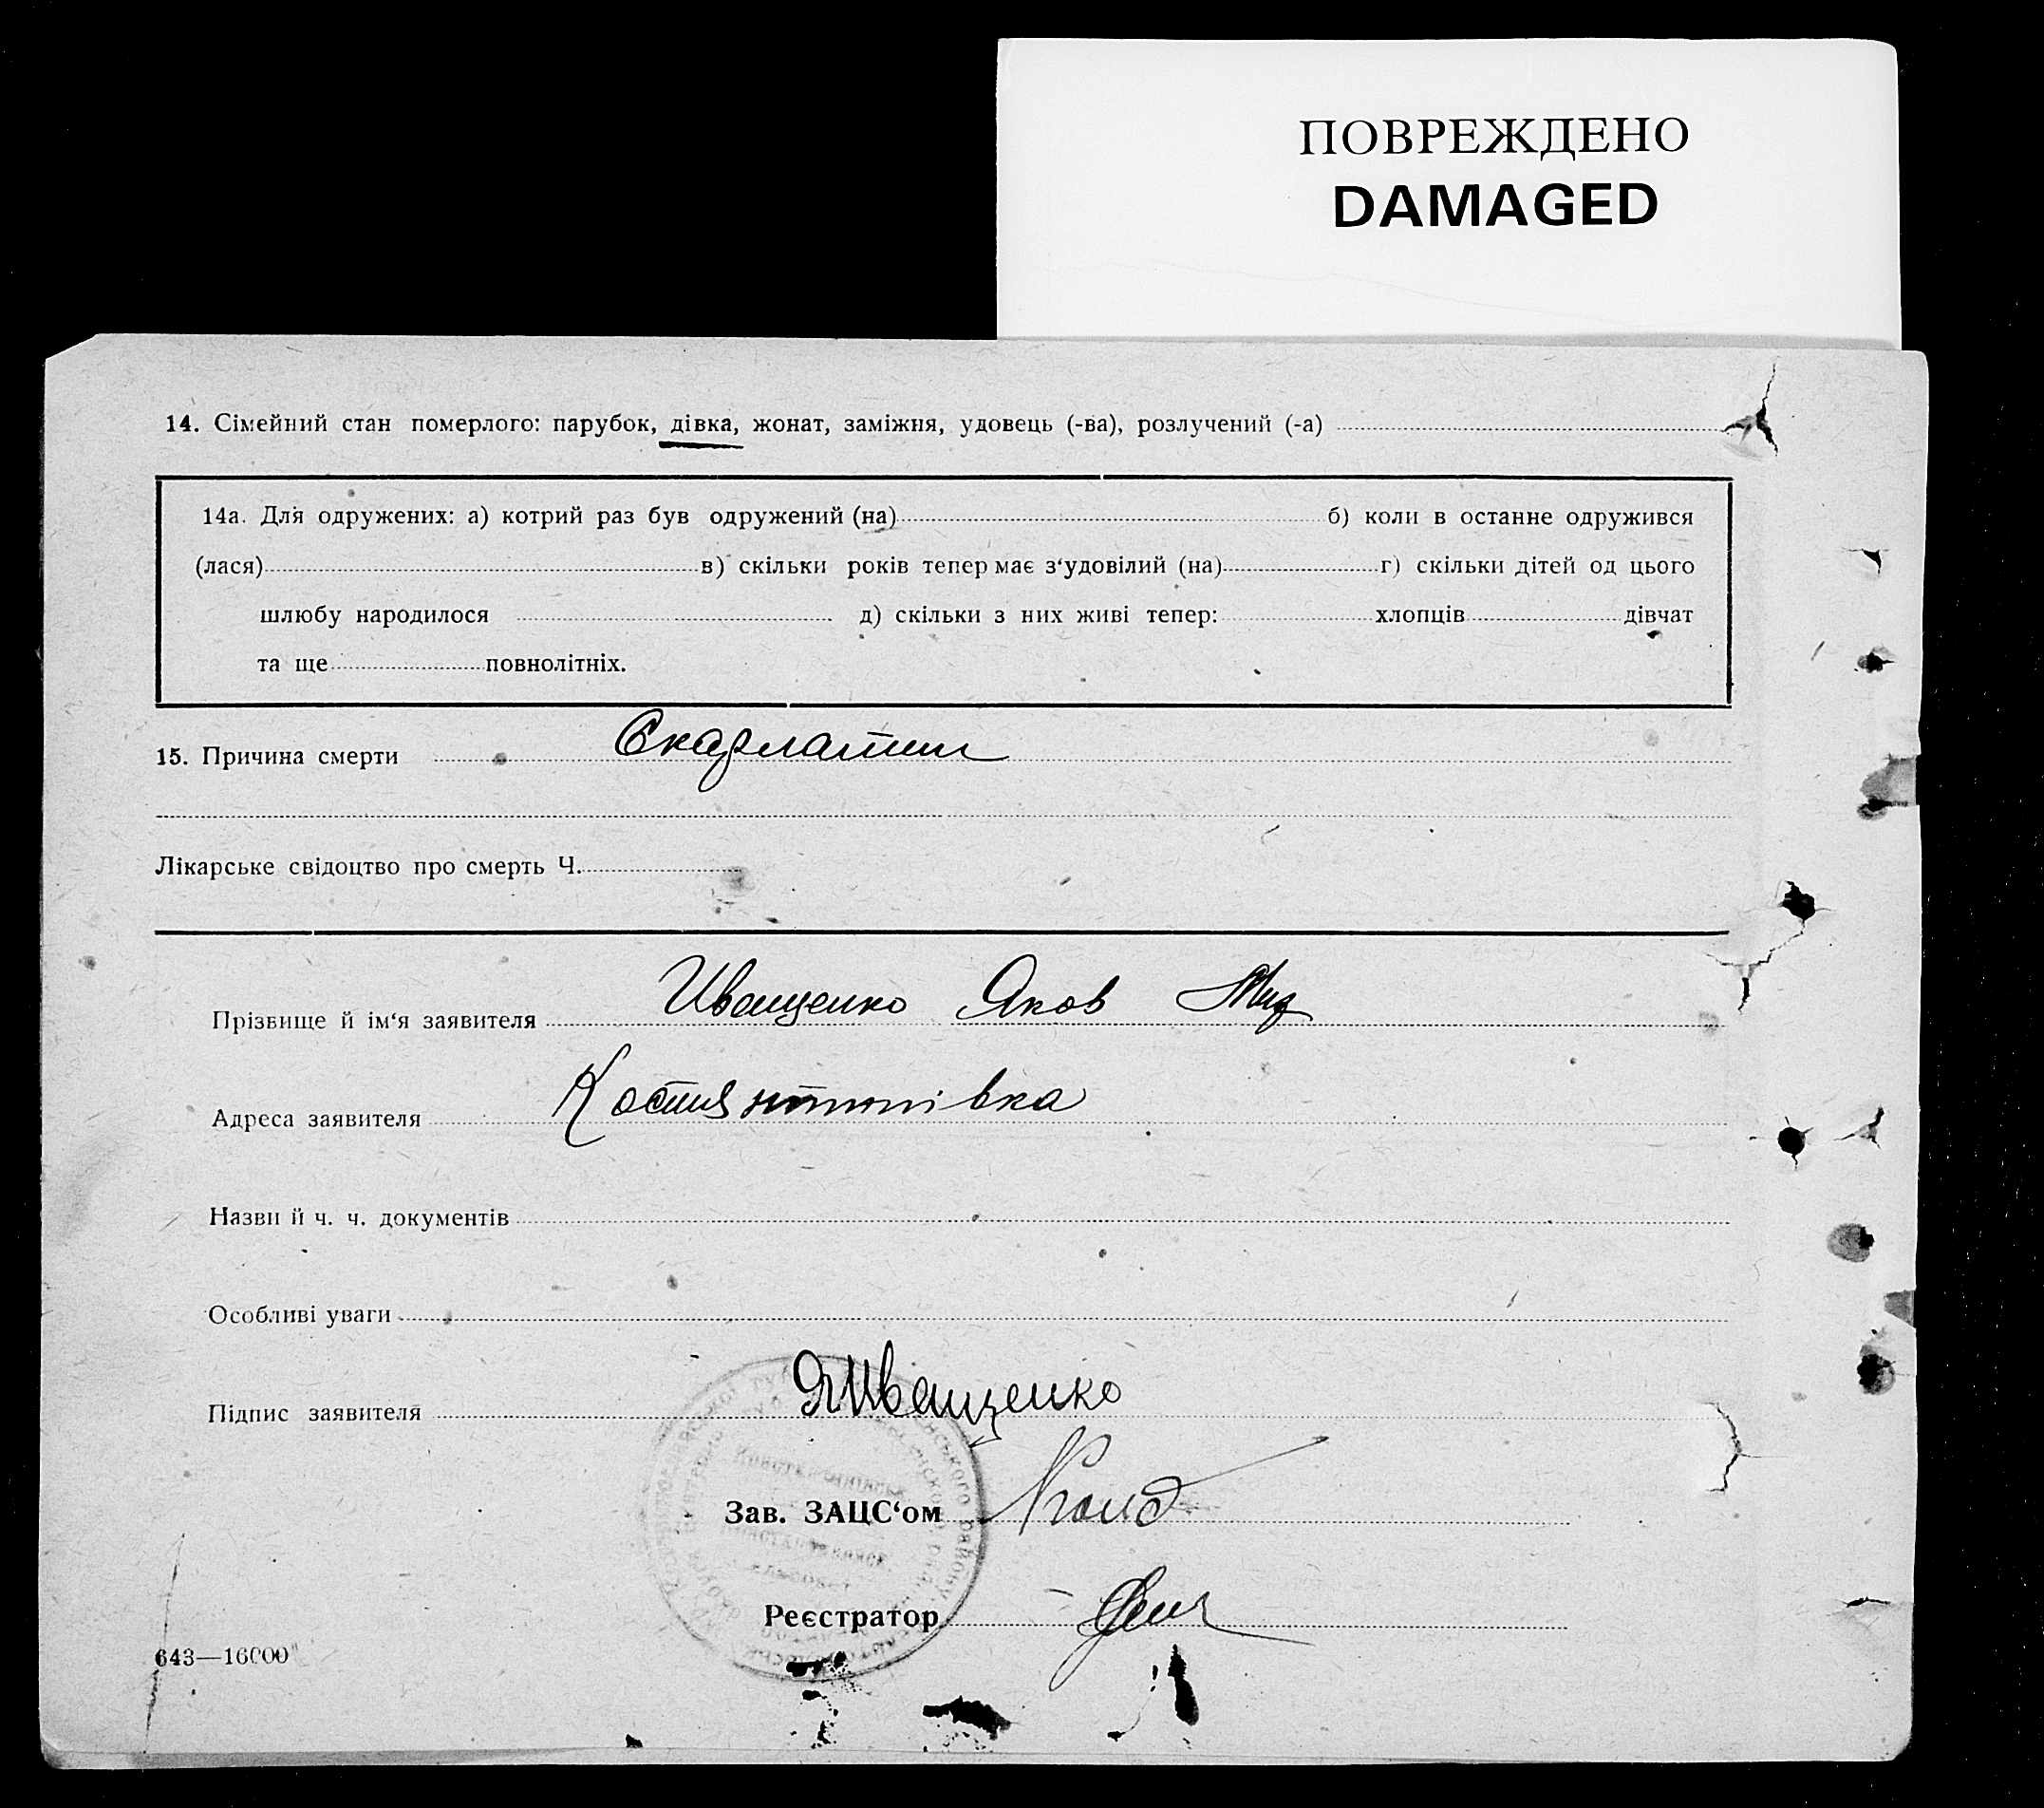 ПОВРЕЖДЕНО
DAMAGED
14. Сімейний стан померлого: парубок, дівка, жонат, заміжня, удовець (-ва), розлучений (-а)
14а. Для одружених: а) котрий раз був одружений (на) б) коли в останне одружився
(лася) в) скільки років тепер має з‘удовілий (на) г) скільки дітей од цього
шлюбу народилося д) скільки з них живі тепер: хлопців дівчат
та ще повнолітніх.
15. Причина смерти Скарлатин
Лікарське свідоцтво про смерть Ч.
Прізвище й ім‘я заявителя Иващенко Яков
Адреса заявителя Костянтинівка
Назви й ч. ч. документів
Особливі уваги
Підпис заявителя ЯИващенко
Зав. ЗАЦС‘ом
Реєстратор
643—16000